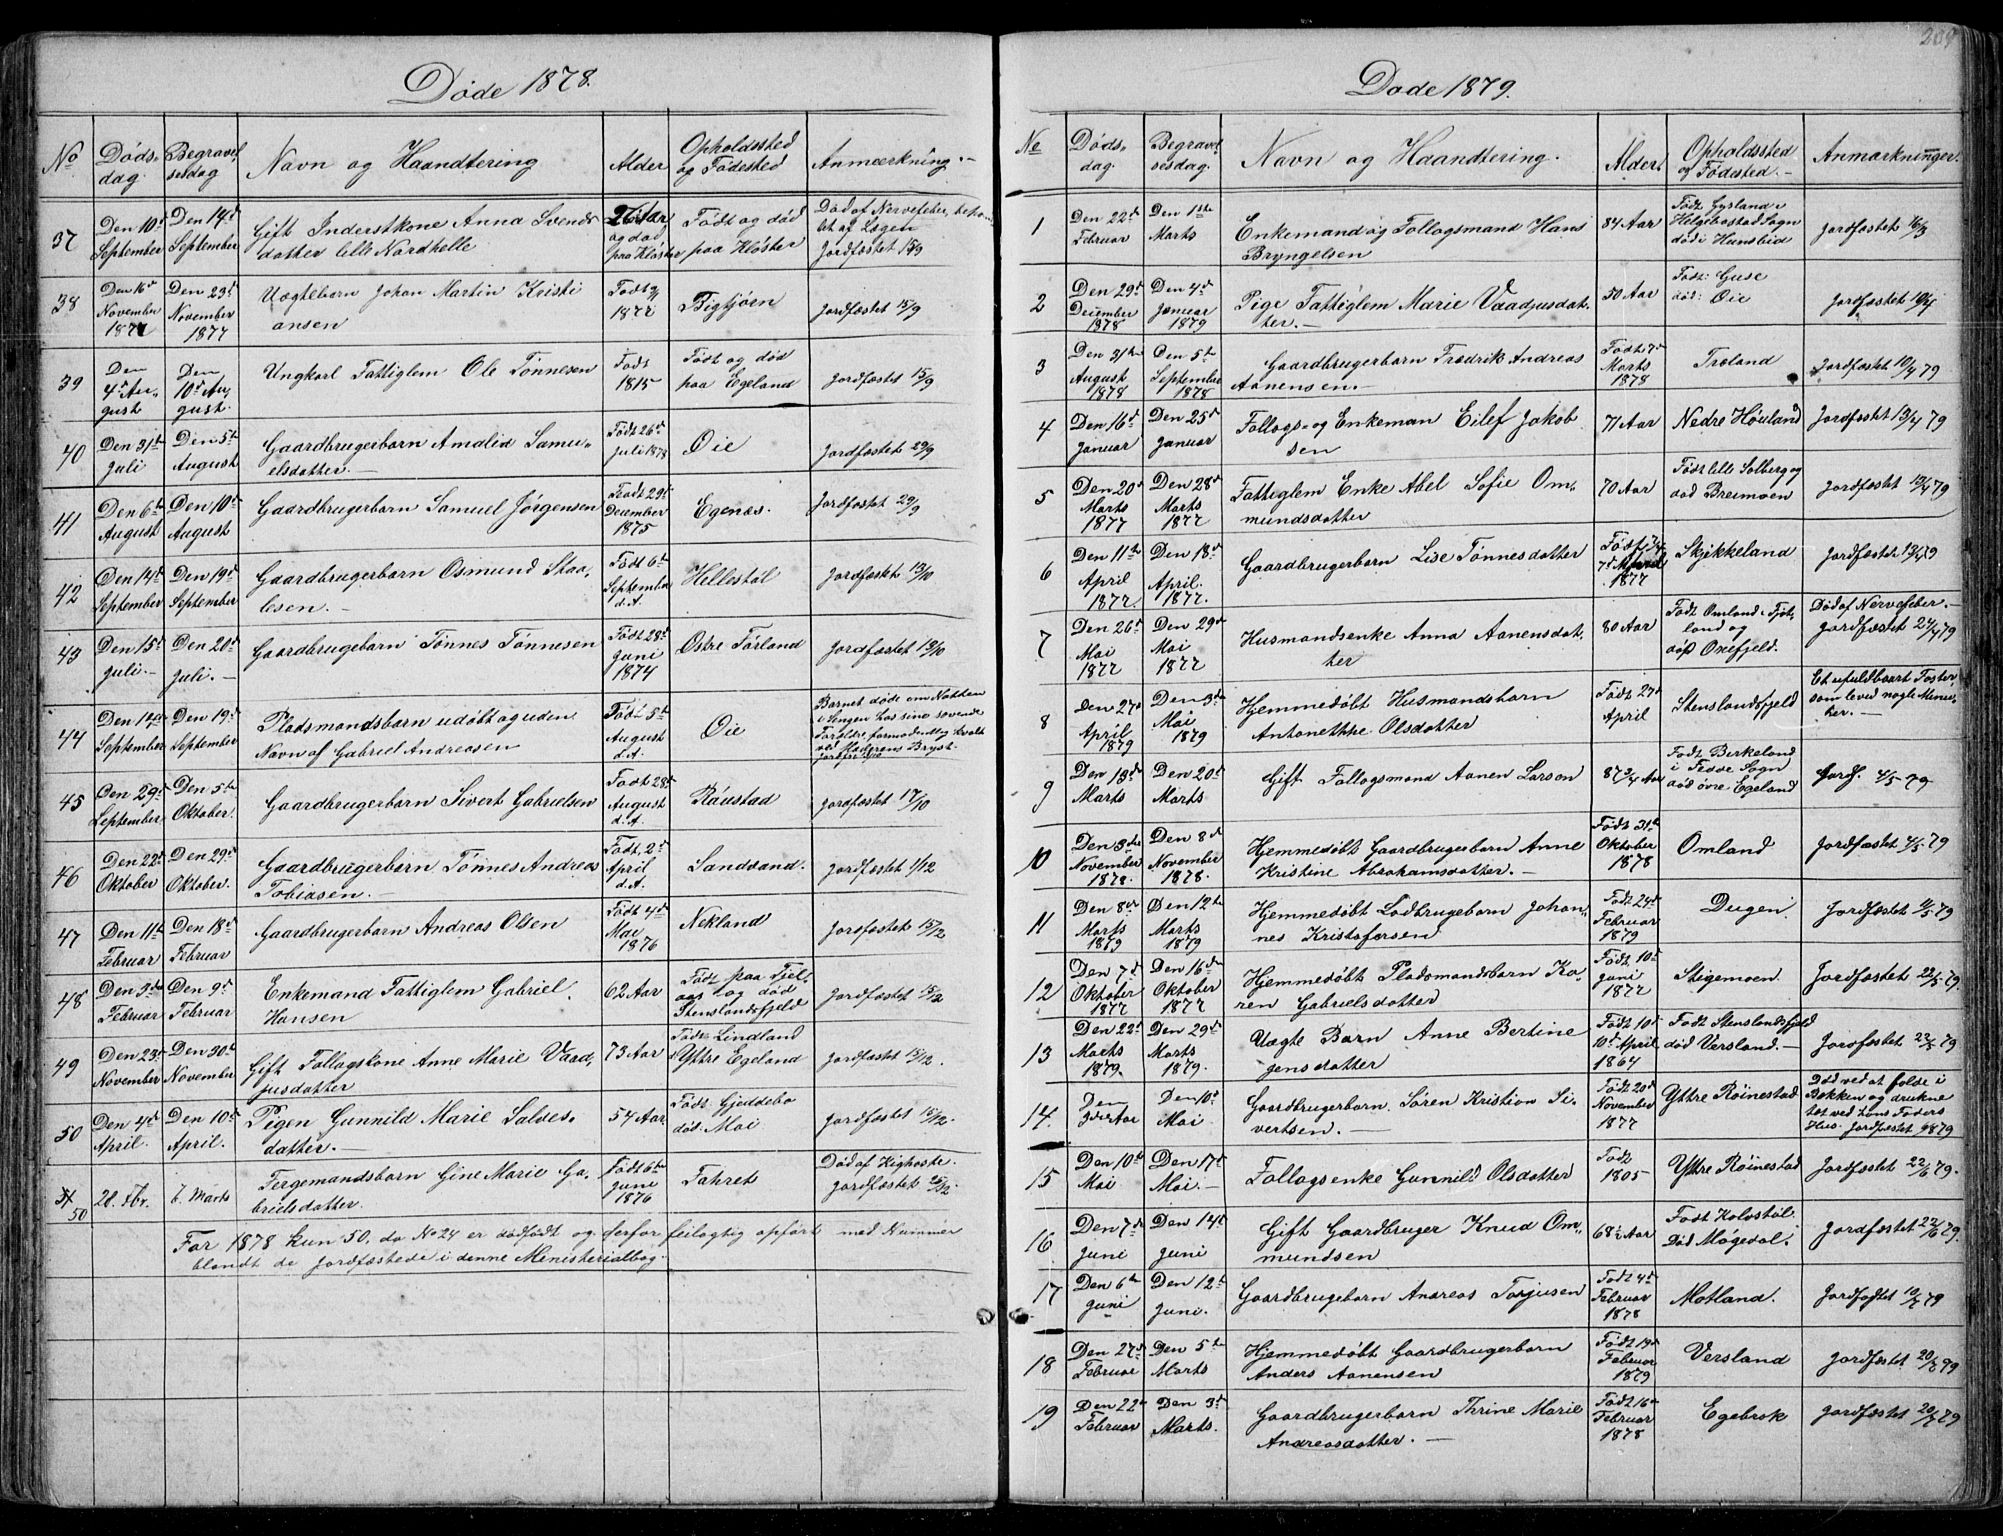 Døde 1878.
No Døds-dag. Begravelsesdag Navn og Haandtering Alder Opholdssted og Fødested Anmærkning.
37 Den 10de September Den 14de September Gift Inderstkone Anna Svendsdatter lille Nordhelle 26 Aar Født og død paa Kloster Død af Nervefeber, af Lægen Jordfæstet 15/9
38 Den 16de November 1877 Den 23de November 1877 Uægtebarn Johan Martin Kristiansen Født 1877 Bigtjørn Jordfæstet 15/9
39 Den 4de August Den 10de August. Ungkarl Fattiglem Ole Tønnesen Født 1815 Født og død paa Egeland Jordfæstet 15/9
40 Den 31te Juli Den 5te August Gaardbrugerbarn Amalia Samuelsdatter.— Født 26de Juli 1878 Øie Jordfæstet 29/9
41 Den 6te August Den 10de August Gaardbrugerbarn Samuel Jørgensen Født 29de December 1875 Egenæs. Jordfæstet 29/9
42 Den 14de September Den 19de September Gaardbrugerbarn Osmund Staalesen.— Født 6te September d.A. Hellestøl Jordfæstet 13/10
43 Den 15de Juli.— Den 20de Juli.— Gaardbrugerbarn Tønnes Tønnesen Født 28de Juni 1874 Østre Førland Jordfæstet 13/10
44 Den 12te September Den 19de September Pladsmandsbarn udøbt og uden Navn af Gabriel Andreasen Født 5te August d.A. Øie Barnet døde om Natten i Sengen hos sine sovende Forældre, formodentlig kvalt ved Moderens Bryst.
45 Den 29de September Den 5te Oktober. Gaardbrugerbarn Sivert Gabrielsen Født 28de August d.A. Røistad Jordfæstet 17/10
46 Den 22de Oktober Den 29de Oktober. Gaardbrugerbarn Tønnes Andreas Tobiasen.— Født 2de April d.A. Sandvand. Jordfæstet 1/12
47 Den 11te Februar Den 18de Februar Gaardbrugerbarn Andreas Olsen Født 4de Mai 1876 Nekland Jordfæstet 15/12
48 Den 3die Februar Den 9de Februar Enkemand Fattiglem Gabriel Hansen 62 Aar Født paa og død Stenslandsfjeld Jordfæstet 15/12
49 Den 23de November Den 30te November Gift Follogskone Anne Marie Vaadjusdatter 73 Aar Født Lindland Yttre Egeland Jordfæstet 15/12.
50 Den 4de April. Den 10de April. Pigen Gunnild Marie Salvesdatter.— 54 Aar. Født Gjeddebo død: Moi Jordfæstet 15/12.
50 28. Fbr. 6. Marts Fergemandsbarn Gine Marie Gabrielsdatter. Født 6te Juni 1876 Fahret Død af Kighoste. Jordfæstet
For 1878 kun 50, da No 24 er dødfødt og derfor feilagtig opført med Nummer
blandt de Jordfæstede i denne Ministerialbog.
Døde 1879.
No Døds-dag. Begravelsesdag. Navn og Haandtering. Alder. Opholdssted og Fødested.— Anmærkninger.
1 Den 22de Februar Den 1ste Marts Enkemand og Follogsmand Hans Bryngelsen 84 Aar Født Lysland i Helgebostad Sogn død i Hunsbid Jordfæstet 16/3
2 Den 29de December 1878 Den 4de Januar 1879 Pige Fattiglem Marie Vaadjusdatter.— 50 Aar Født: Guse død: Øie Jordfæstet 10/4
3 Den 31te August 1878 Den 5te September 1878 Gaardbrugerbarn Fredrik Andreas Aanensen.— Født 7de Marts 1878 Troland Jordfæstet 10/4 79
4 Den 16de Januar Den 25de Januar Follogs- og Enkeman Eilef Jakobsen 71 Aar Nedre Høuland Jordfæstet 13/4 79
5 Den 20de Marts 1877 Den 28de Marts 1877 Fattiglem Enke Abel Sofie Ommundsdatter 70 Aar Født lille Solberg og død Breimoen Jordfæstet 13/4 79
6 Den 11te April 1877. Den 18de April. 1877. Gaardbrugerbarn Lise Tønnesdatter Født 7de 1877 Skjekkeland Jordfæstet 13/4 79
7 Den 26de Mai 1877 Den 29de Mai 1877 Husmandsenke Anna Aanensdatter 80 Aar Født Omland i Fjotland og død Knefjeld. Død af Nervefeber. Jordfæstet 24/4 79
8 Den 27de April 1879 Den 3die Mai 1879 Hjemmedøbt Husmandsbarn Antonethe Olsdatter Født 27de April Stenslandsfjeld Et ufuldbaart Foster som leved nogle Minuter.—
9 Den 13de Marts Den 20de Marts Gift Follogsmand Aanen Larsen 87 3/4 Aar Født Birkeland i Fede Sogn død øvre Egeland Jordf. 4/5 79
10 Den 3die November 1878. Den 8de November 1878. Hjemmedøbt Gaardbrugerbarn Anne Kristine Abrahamsdatter.— Født 31te Oktober 1878 Omland Jordfæstet 4/5 79
11 Den 8de Marts 1879 Den 12te Marts 1879 Hjemmedøbt Lodbrugebarn Johannes Kristofersen Født 24de Februar 1879 Dugen. Jordfæstet 11/5 79
12 Den 7de Oktober 1877 Den 16de Oktober 1877 Hjemmedøbt Pladsmandsbarn Karen Gabrielsdatter Født, 10de Juni 1877 Stigemoen Jordfæstet 22/5 79.
13 Den 22de Marts 1879. Den 29de Marts 1879. Uægte Barn Anne Bertine Jensdatter Født 10de 10de April 1864 Født Stenslandsfjeld død Versland.— Jordfæstet 22/5 79
14. Den Den 10de Mai Gaardbrugerbarn. Søren Kristian Sivertsen.— Født 20de November 1877 Yttre Røinestad Død ved at falde i Bekken og druknet ved hans Faders Hus. Jordfæstet
15 Den 10de Mai Den 17de Mai.— Follogsenke Gunnild Olsdatter Født 1805 Yttre Røinestad Jordfæstet 22/6 79.
16 Den 7de Juni Den 14de Juni Gift Gaardbruger Knud Ommundsen 68½ Aar Født Kolsstøl. Død Mogedal. Jordfæstet 22/6 79.
17 Den 6te Juni Den 12te Juni. Gaardbrugebarn Andreas Torjusen Født 4de Februar 1878 Motland. Jordfæstet 10/7 79
18 Den 27de Februar Den 5te Marts Hjemmedøbt Gaardbrugerbarn Anders Aanensen Født 19de Februar 1879 Versland Jordfæstet 20/7 79
19 Den 22de Februar Den 3de Marts. Gaardbrugerbarn Thrine Marie Andreasdatter.— Født 16de Februar 1878 Egebrok Jordfæstet 20/7 79